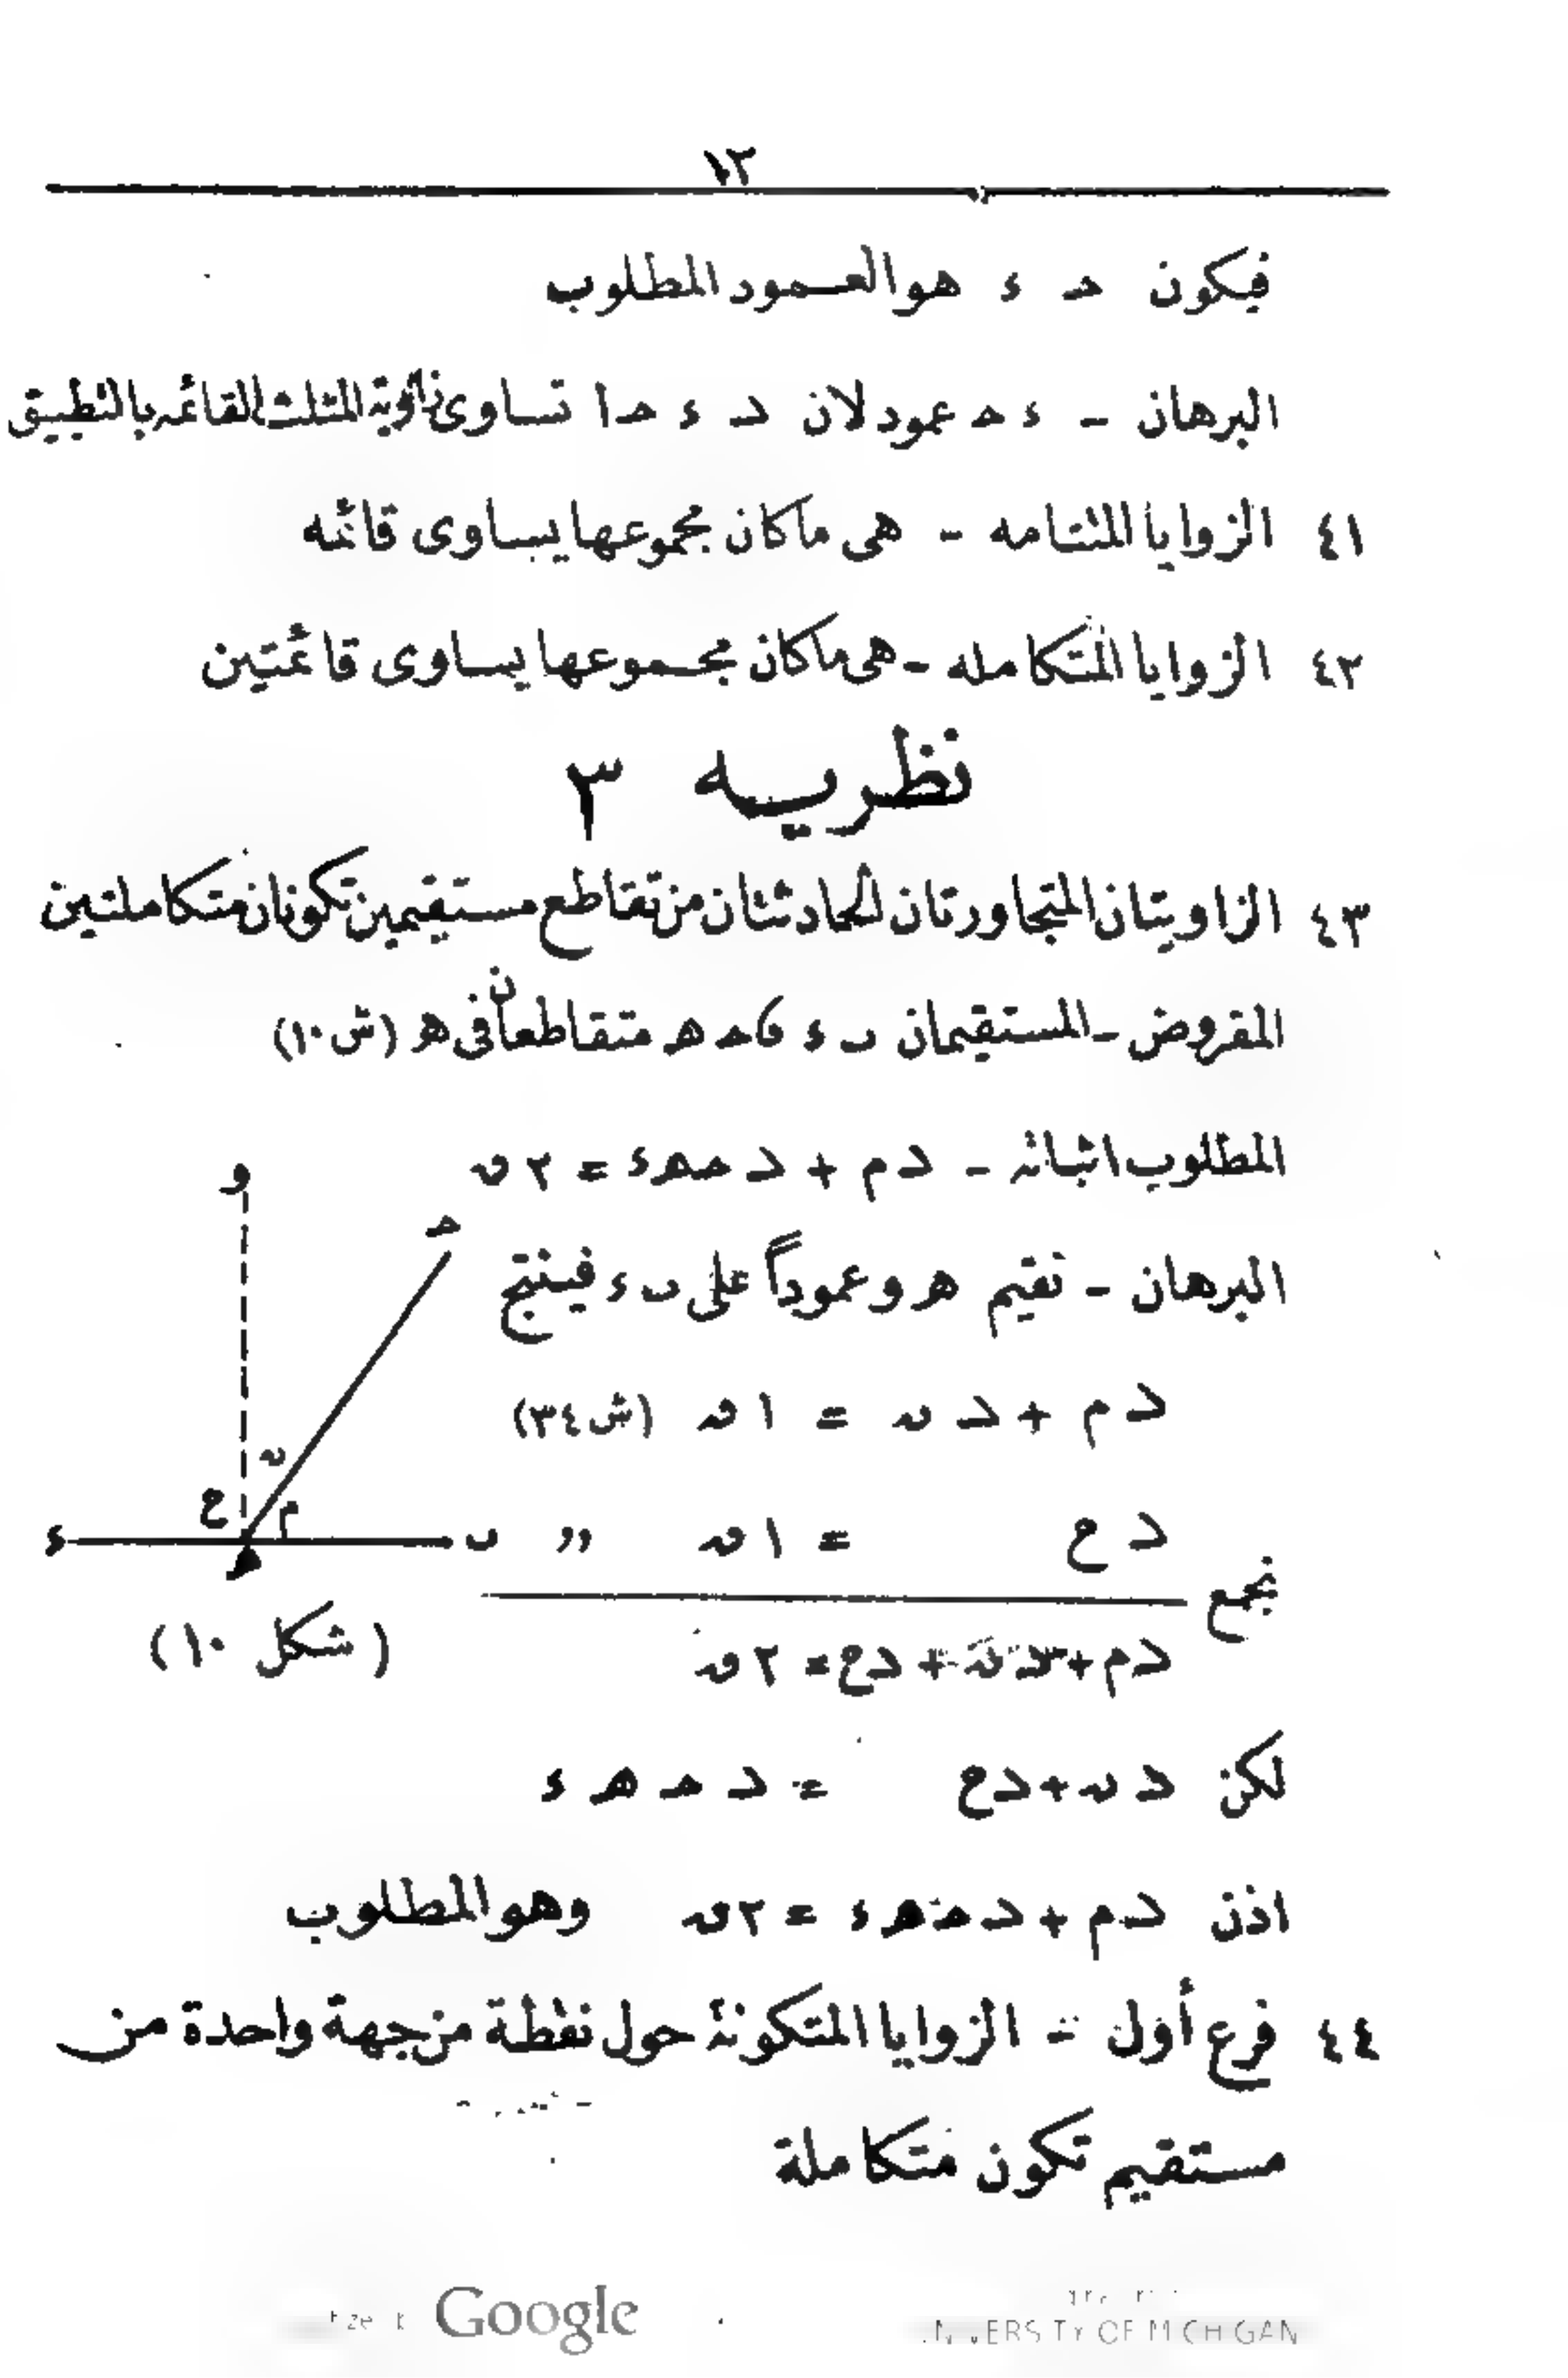 ١٢
فيكون حـ ء هو العمود المطلوب
البرهان - ء حـ عمود لان د ء حـ ا تساوى زاوية المثلث القائمه بالتطبيق
٤١ الزوايا المتتامه - هى ما كان مجموعها يساوى قائمه
٤٢ الزوايا المتكامله - هى ما كان مجموعها يساوى قائمتين
نظريه ٣
٤٣ الزاويتان المتجاورتان الحادثتان من تقاطع مستقيمين تكونان متكاملتين
المفروض - المستقيمان ب ء ، حـ هـ متقاطعان فى هـ (ش ١٠)
المطلوب اثباته - د م + د حـ هـ ء = ٢ ق
البرهان - نقيم هـ و عموداً على ب ء فينتج
د م + د ن = ١ ق (ش ٣٤)
د ع = ١ ق ,,
نجمع
د م + د ن + د ع = ٢ ق
لكن د ن + د ع = د حـ هـ ء
اذن د م + د حـ هـ ء = ٢ ق وهو المطلوب
و
حـ
ن
ع
م
ء
ب
هـ
(شكل ١٠)
٤٤ فرع أول - الزوايا المتكونة حول نقطة من جهة واحدة من
مستقيم تكون متكاملة
Google
UNIVERSITY OF MICHIGAN